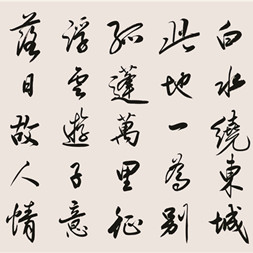 白水繞東城
此地一為別
孤蓬萬里征
浮雲遊子意
落日故人情